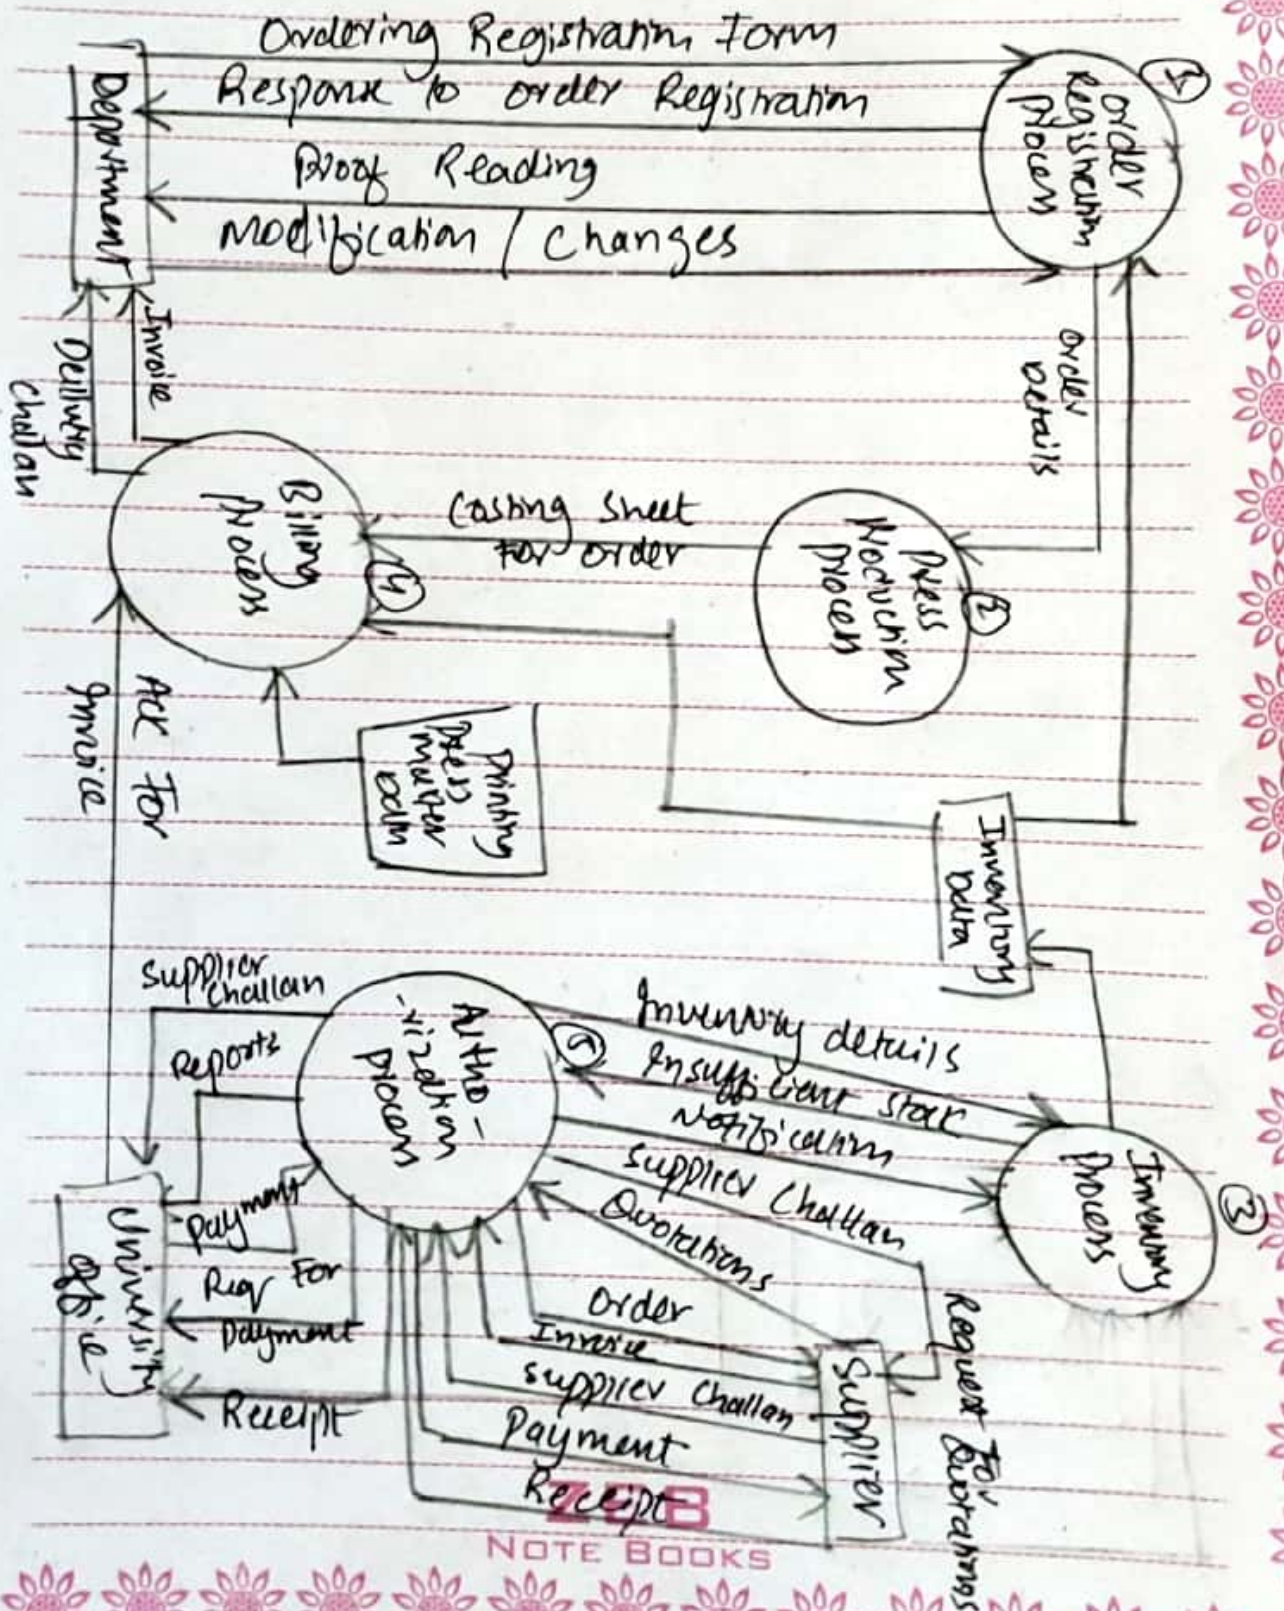 Ordering Registration Form
Response to order Registration
Proof Reading
Modification / Changes
Department
1
Order
Registration
Process
Invoice
Delivery
Challan
Order
Details
Billing
Process
4
Costing Sheet
For order
Press
Production
Process
2
Ack For
Invoice
Printing
Press
Master
Data
Inventory
Data
Supplier
Challan
Reports
Autho-
-rization
Process
5
Inventory details
Insufficient Stock
Notification
Supplier Challan
Quotations
Inventory
Process
3
University
Office
Payment
Req For
Payment
Receipt
Order
Invoice
Supplier Challan
Payment
Receipt
Supplier
Request For Quotations
ZEB
NOTE BOOKS